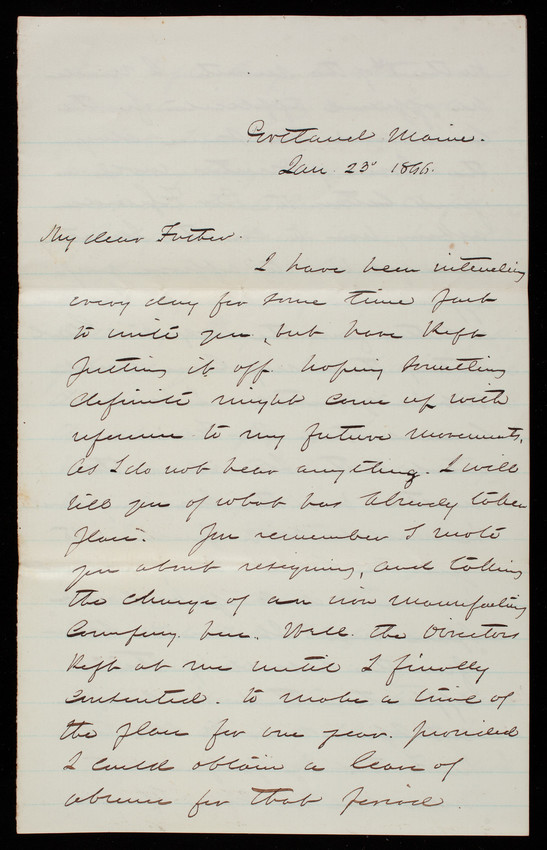 Portland Maine.
Jan. 23d 1866.
My dear Father.
I have been intending
every day for some time past
to write you, but have kept
putting it off hoping something
definite might come up with
reference to my future movements.
As I do not hear anything. I will
tell you of what has already taken
place. You remember I wrote
you about resigning, and taking
the charge of an iron manufacturing
Company here. Well. the Directors
kept at me until I finally
consented. to make a trial of
the place for one year. provided
I could obtain a leave of
absence for that period.